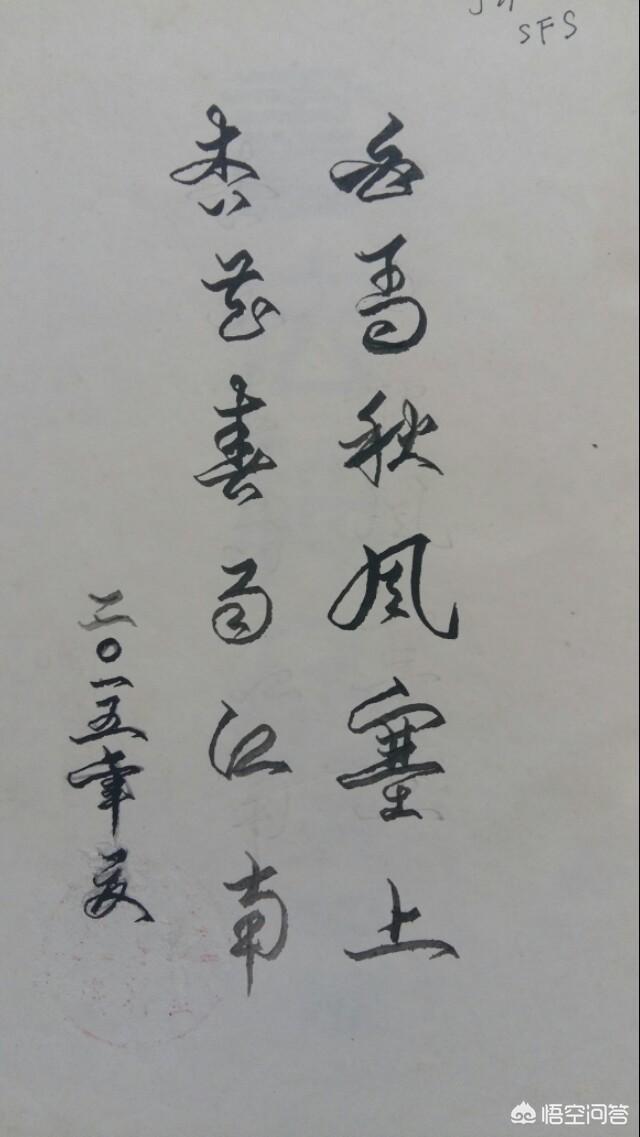 SFS
白马秋风塞上
杏花春雨江南
二〇一五年夏
悟空问答